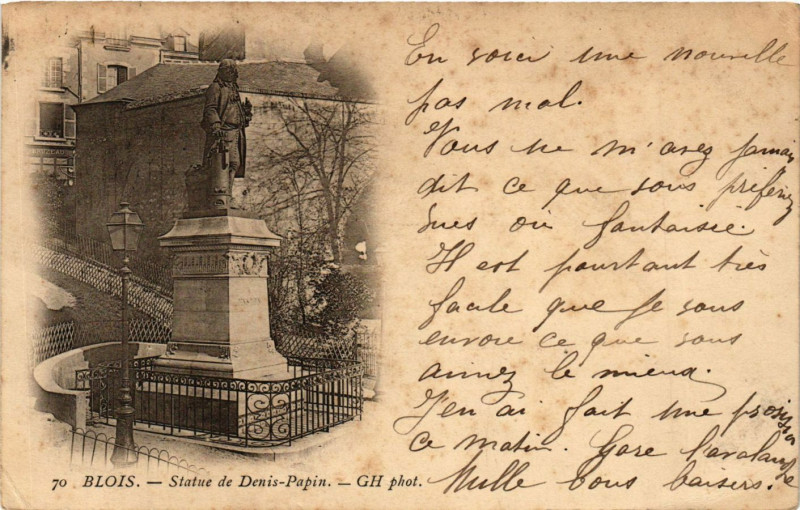 En voici une nouvelle
pas mal.
Vous ne m'avez jamais
dit ce que vous préférez
vues ou fantaisie.
Il est pourtant très
facile que je vous
envoie ce que vous
aimez le mieux.
J'en ai fait une provision
ce matin. Gare l'avalanche
Mille bons baisers.
70 BLOIS. — Statue de Denis-Papin. — GH phot.